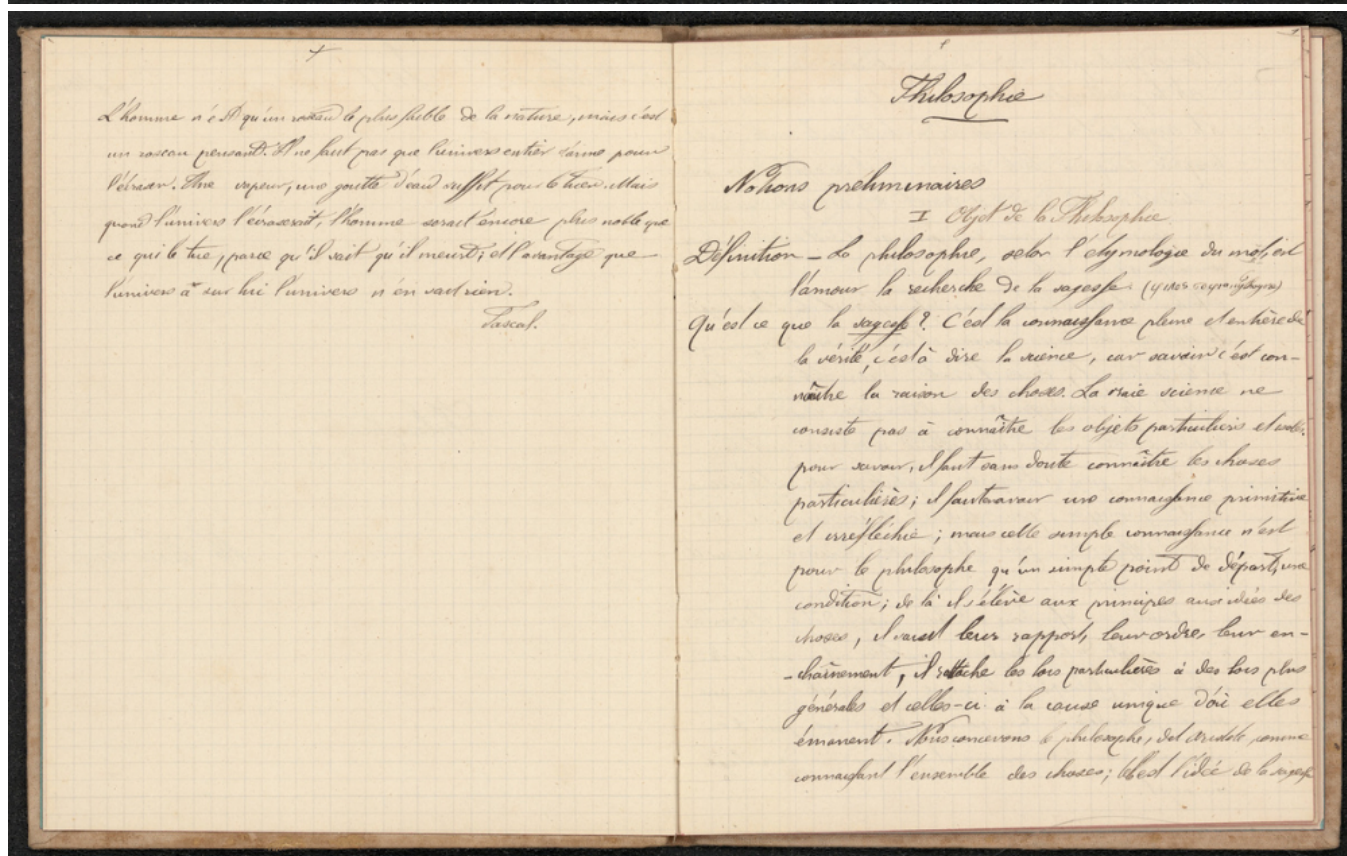 L'homme n'est qu'un roseau le plus faible de la nature, mais c'est
un roseau pensant. Il ne faut pas que l'univers entier s'arme pour
l'écraser. Une vapeur, une goutte d'eau suffit pour le tuer. Mais
quand l'univers l'écraserait, l'homme serait encore plus noble que
ce qui le tue, parce qu'il sait qu'il meurt; et l'avantage que
l'univers a sur lui l'univers n'en sait rien.
Pascal.
Philosophie
Notions preliminaires
I Objet de la Philosophie
Définition – La philosophie, selon l'étymologie du mot, est
l'amour la recherche de la sagesse
Qu'est ce que la sagesse? C'est la connaissance pleine et entière de
la vérité, c'est à dire la science, car savoir c'est con-
naître la raison des choses. La vraie science ne
consiste pas à connaître les objets particuliers et
pour savoir, il faut sans doute connaître les choses
particulières; il faut avoir une connaissance primitive
et irréfléchie; mais cette simple connaissance n'est
pour le philosophe qu'un simple point de départ, une
condition; de là il s'élève aux principes aux idées des
choses, il saisit leur rapport, leur ordre, leur en-
-chaînement, il rattache les lois particulières à des lois plus
générales et celles-ci à la cause unique d'où elles
émanent. Nous concevons le philosophe, dit Aristote, comme
connaissant l'ensemble des choses; telle est l'idée de la sagesse